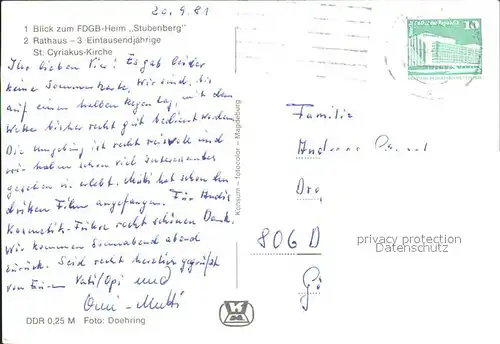 20.9.81
1 Blick zum FDGB-Heim „Stubenberg"
2 Rathaus – 3 Eintausendjährige
St. Cyriakus-Kirche
Ihr lieben Vier! Es gab leider
keine Sommerkarte. Wir sind, bis
auf einen halben Regentag, mit dem
Wetter bisher recht gut bedient worden.
Die Umgebung ist recht reizvoll und
wir haben schon viel Interessantes
gesehen u. erlebt. hat schon den
dritten Film angefangen. Für Andis
Kosmetik-Führer recht schönen Dank.
Wir kommen Sonnabend abend
zurück. Seid recht herzlich gegrüßt
von Euren Vati/Opi und
Omi-Mutti
DDR 0,25 M Foto: Doehring
Konsum - fotocolor - Magdeburg
10
Familie
Andreas
806 D
privacy protection
Datenschutz